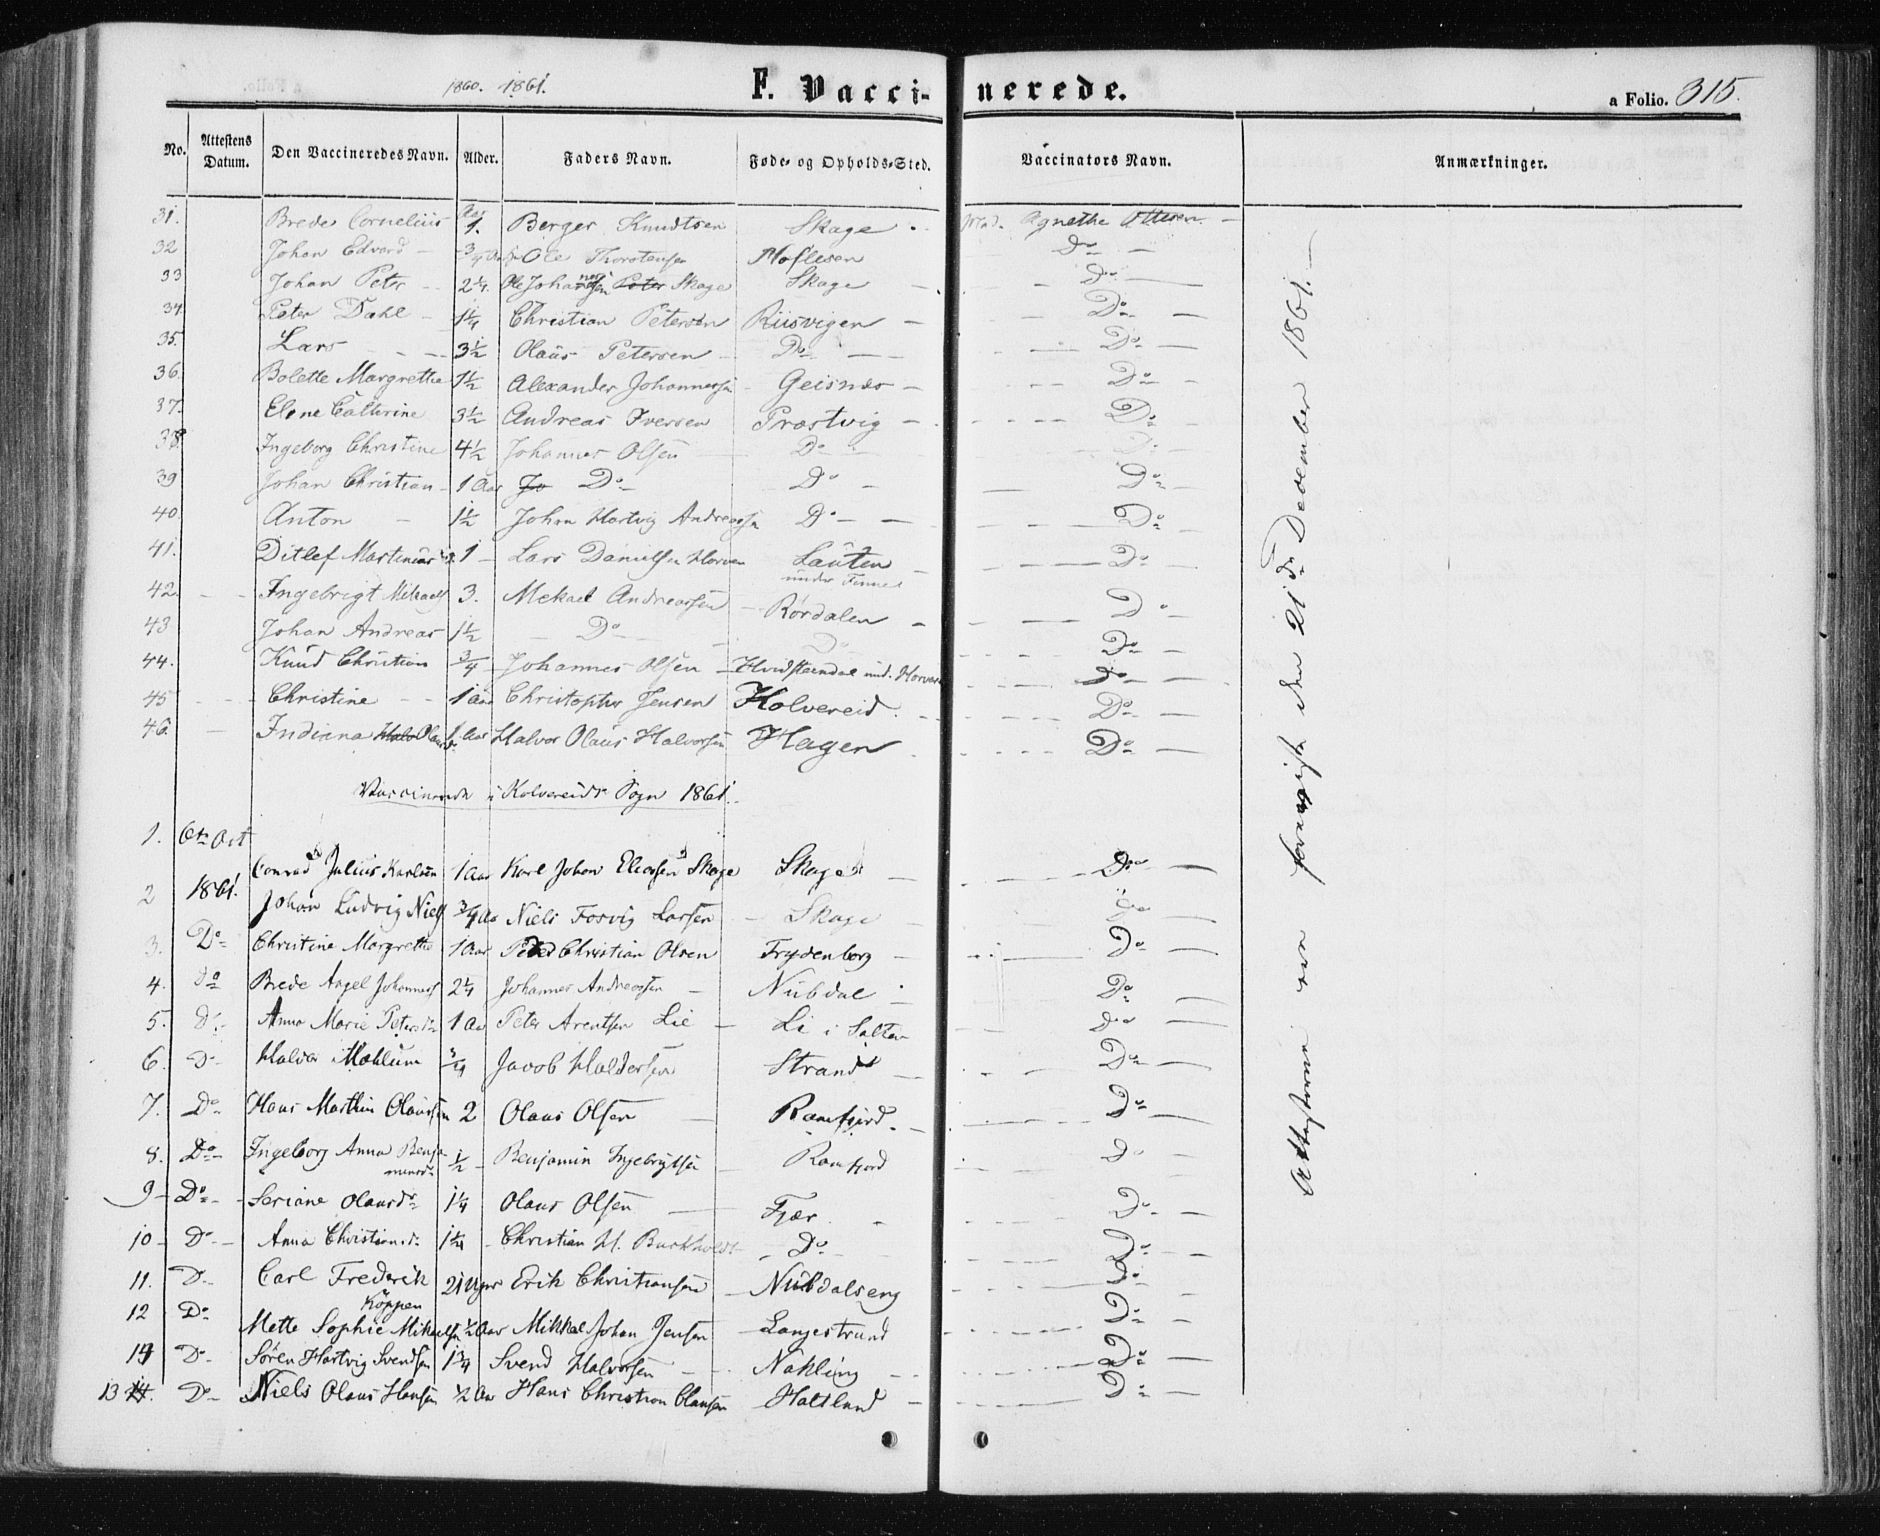 1860. 1861.
F. Vaccinerede.
a Folio. 315.
No. Attestens Datum. Den Vaccineredes Navn. Alder. Faders Navn. Føde- og Opholds-Sted. Vaccinators Navn. Anmærkninger.
31. Brede Cornelius Aar 1. Berger Knudtsen Skage Mad. Agnethe Ottesen
32 Johan Edvard 3/4 Ole Thorstensen Moflesen Do
33 Johan Peter 2 1/4 Ole Johan Peter Skage Skage Do
34 Peter Dahl 1 1/4 Christian Petersen Riisvigen Do
35. Lars 3 1/2 Olaus Petersen Do Do
36. Bolette Margrethe 1 1/2 Alexander Johannessen Geisnes Do
37. Elene Cathrine 3 1/2 Andreas Iversen Præstvig Do
38 Ingeborg Christine 4 1/2 Johannes Olsen Do Do
39 Johan Christian 1 Aar Jo Do Do Do
40 Anton 1 1/2 Johan Hartvig Andreassen Do Do
41. Ditlef Martinius 1 Lars Danielsen Horven Lauten under Finne Do
42. Ingebrigt Mikaels 3. Mekael Andreassen Rørdalen Do
43 Johan Andreas 1 1/2 Do Do Do
44. Knud Christian 3/4 Johannes Olsen Hvidsteendal und. Horven Do
45 Christine 1 Aar Christopher Jensen Kolvereid Do
46. Indiana Halv Olausd. 1 Aar Halvor Olaus Halvorsen Hagen Do
Vaccinerede i Kolvereids Sogn 1861.
1. 6te Oct Conrad Julius Karlsen 1 Aar Karl Johan Eliassen Skage Skage Do
2 1861. Johan Ludvig Niels 3/4 Aar Niels Fosvig Larsen Skage Do
3. Do Christine Margrethe 1 Aar Peder Christian Olsen Frydenborg Do
4. Do Brede Angel Johannes 2 1/4 Johannes Andreassen Nubdal Do
5. Do Anna Marie Petersd. 1 Aar Peter Arentsen Lie Li i Salten Do
6. Do Halvor Mohlum 3/4 Jacob Haldorsen Strand Do
7. Do Hans Marthin Olaussen 2 Olaus Olsen Ramfjord Do
8. Do Ingeborg Anna Benjaminsd. 1/2 Benjamin Ingebrigtsen Ramfjord Do
9 Do Seriane Olausd. 1 1/4 Olaus Olsen Fjær Do
10 Do Anna Christiansd. 1 1/4 Christian H. Buckholdt Do Do
11. Do Carl Frederik Köppen 21 Uger Erik Christiansen Nubdalseng Do
12 Do Mette Sophie Mikaelsen 1/2 Aar Mikkel Johan Jensen Langestrand Do
14 Do Søren Hartvig Svendsen 1 3/4 Svend Halvorsen Nakling Do
13 Do Niels Olaus Hansen 1/2 Aar Hans Christian Clausen Haltland Do
Attesterne ere foreviiste den 21de December 1861.